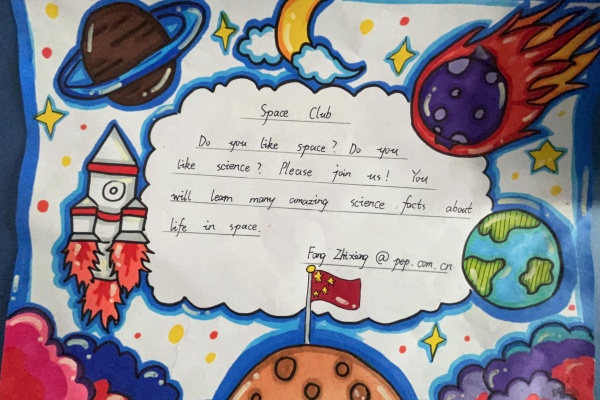 Space Club
Do you like space? Do you
like science? Please join us! You
will learn many amazing science facts about
life in space.
Fang Zhixiang @ pep.com.cn